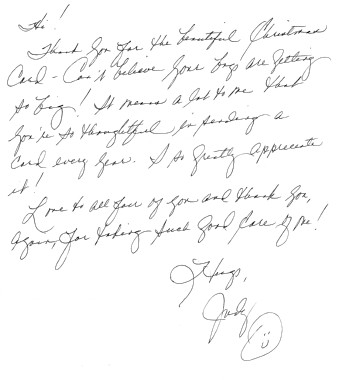 Hi!
Thank you for the beautiful Christmas
Card - Can't believe your boys are getting
so big! It means a lot to me that
you're so thoughtful in sending a
Card every year. I so greatly appreciate
it!
Love to all four of you and thank you,
again, for taking such good care of me!
Hugs,
Judy